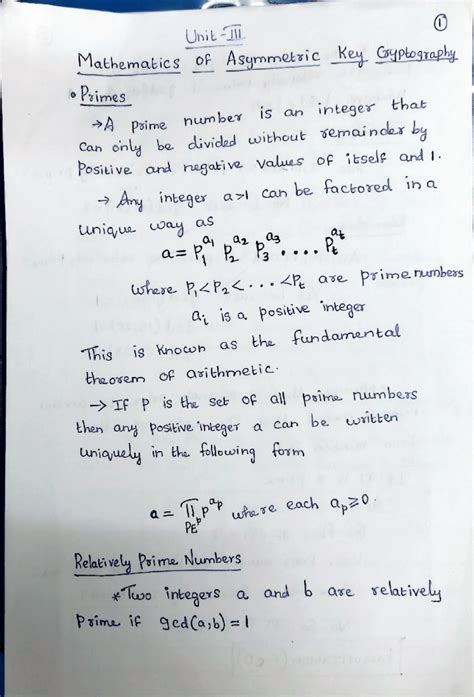 ①
Unit-III
Mathematics of Asymmetric Key Cryptography
• Primes
→ A prime number is an integer that
can only be divided without remainder by
Positive and negative values of itself and 1.
→ Any integer a>1 can be factored in a
unique way as
a = p₁^a₁ p₂^a₂ p₃^a₃ .... p_t^a_t
where P₁<P₂< ... <P_t are prime numbers
a_i is a positive integer
This is known as the fundamental
theorem of arithmetic.
→ If P is the set of all prime numbers
then any positive integer a can be written
uniquely in the following form
a = ∏_{P∈P} p^a_p where each a_p ≥ 0.
Relatively Prime Numbers
* Two integers a and b are relatively
Prime if gcd(a,b) = 1